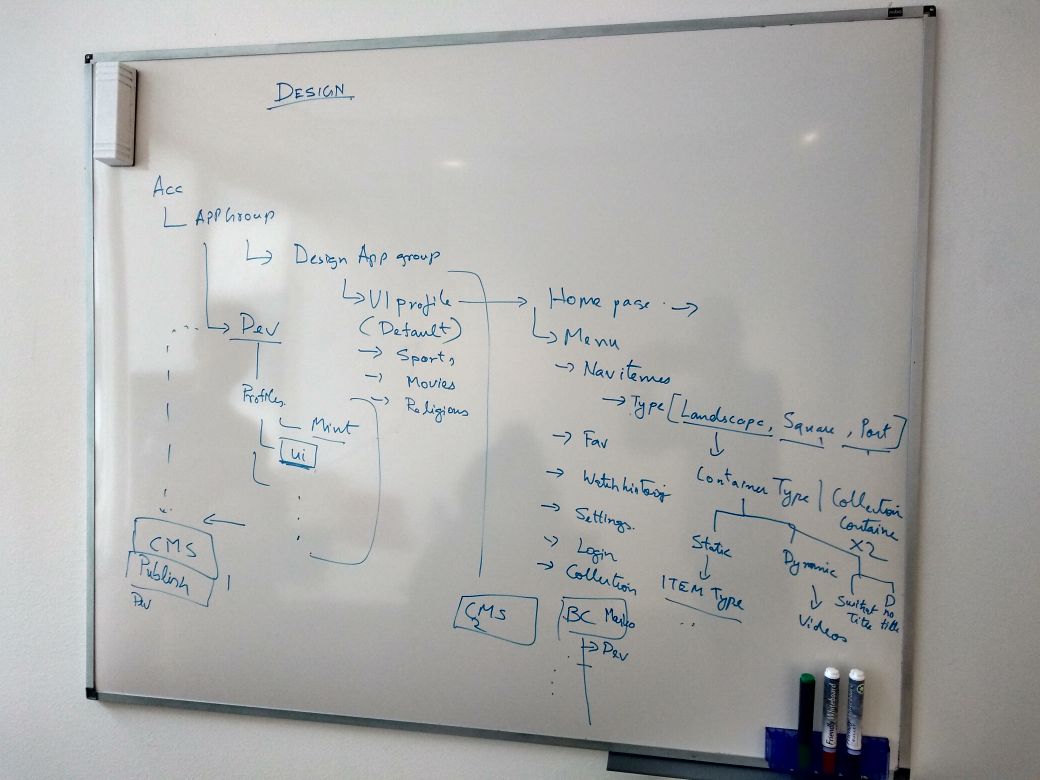 DESIGN
Acc
APPGroup
Design App group
UI profile
(Default)
→ Sports
→ Movies
→ Religious
Dev
Profiles
Mint
ui
CMS
Publish
Dev
Home page →
Menu
→ Nav items
→ Type [Landscape, Square, Port]
→ Fav
→ Watch history
→ Settings
→ Login
→ Collection
Container Type | Collection
Containe
X2
Static
ITEM Type
Dynamic
Videos
Title
D
no
title
CMS
2
BC
→ Dev
Friendly Whiteboard